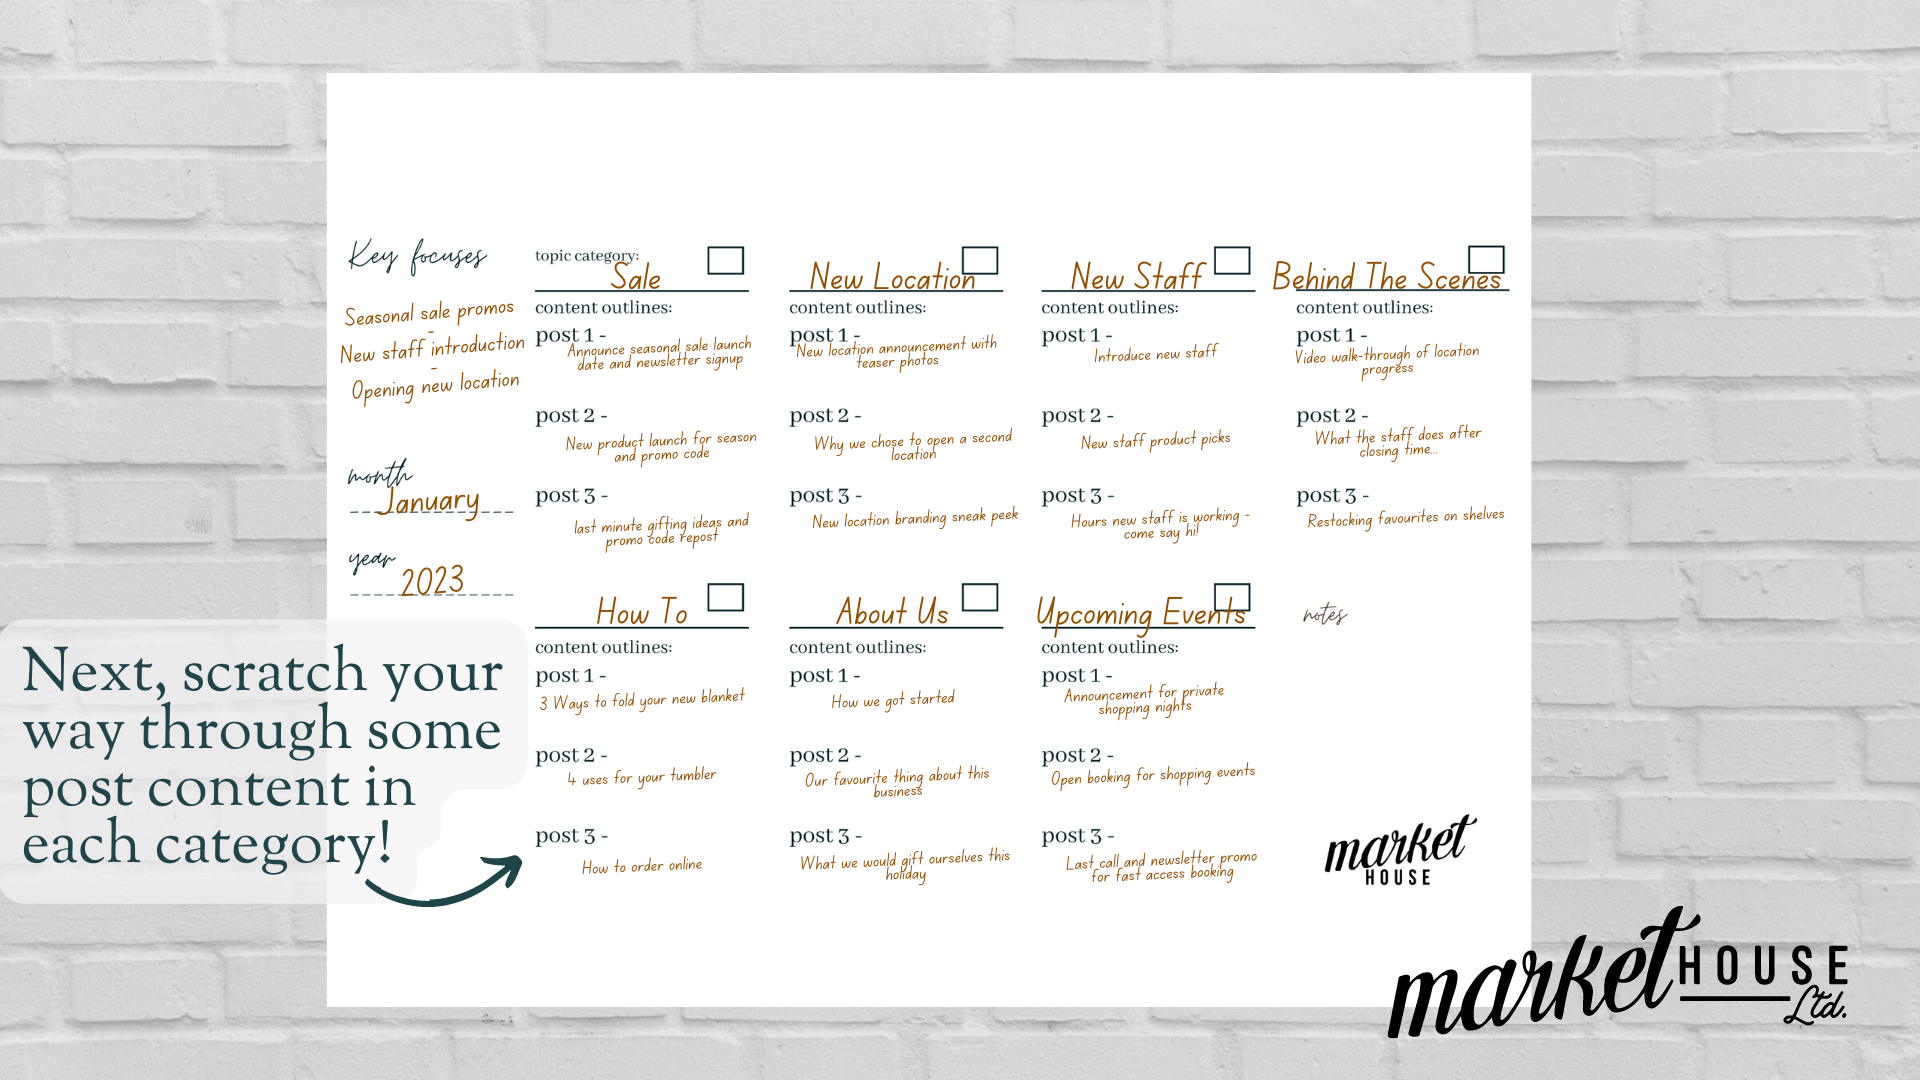 Key focuses
Seasonal sale promos
-
New staff introduction
-
Opening new location
month
January
year
2023
topic category:
Sale
content outlines:
post 1 -
Announce seasonal sale launch
date and newsletter signup
post 2 -
New product launch for season
and promo code
post 3 -
last minute gifting ideas and
promo code repost
New Location
content outlines:
post 1 -
New location announcement with
teaser photos
post 2 -
Why we chose to open a second
location
post 3 -
New location branding sneak peek
New Staff
content outlines:
post 1 -
Introduce new staff
post 2 -
New staff product picks
post 3 -
Hours new staff is working -
come say hi!
Behind The Scenes
content outlines:
post 1 -
Video walk-through of location
progress
post 2 -
What the staff does after
closing time...
post 3 -
Restocking favourites on shelves
How To
content outlines:
post 1 -
3 Ways to fold your new blanket
post 2 -
4 uses for your tumbler
post 3 -
How to order online
About Us
content outlines:
post 1 -
How we got started
post 2 -
Our favourite thing about this
business
post 3 -
What we would gift ourselves this
holiday
Upcoming Events
content outlines:
post 1 -
Announcement for private
shopping nights
post 2 -
Open booking for shopping events
post 3 -
Last call and newsletter promo
for fast access booking
notes
market
HOUSE
Next, scratch your
way through some
post content in
each category!
market HOUSE
Ltd.